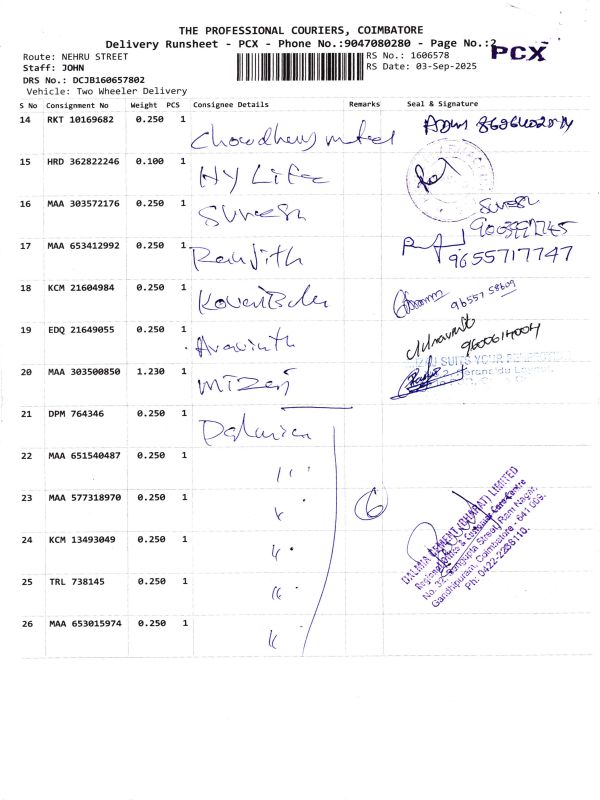 THE PROFESSIONAL COURIERS, COIMBATORE
Delivery Runsheet - PCX - Phone No.:9047080280 - Page No.:2
PCX
Route: NEHRU STREET
RS No.: 1606578
Staff: JOHN
RS Date: 03-Sep-2025
DRS No.: DCJB160657802
Vehicle: Two Wheeler Delivery
S No Consignment No Weight PCS Consignee Details Remarks Seal & Signature
14 RKT 10169682 0.250 1
15 HRD 362822246 0.100 1 HY Life
16 MAA 303572176 0.250 1 Suresh Suresh
17 MAA 653412992 0.250 1 Ranjith 9655717747
18 KCM 21604984 0.250 1
19 EDQ 21649055 0.250 1 Aravinth
20 MAA 303500850 1.230 1
21 DPM 764346 0.250 1 Dalmia
22 MAA 651540487 0.250 1 "
23 MAA 577318970 0.250 1 " 6
24 KCM 13493049 0.250 1 "
25 TRL 738145 0.250 1 "
26 MAA 653015974 0.250 1 "
DALMIA CEMENT (BHARAT) LIMITED
Gandhipuram, Coimbatore - 641 009.
Ph: 0422-2236110.